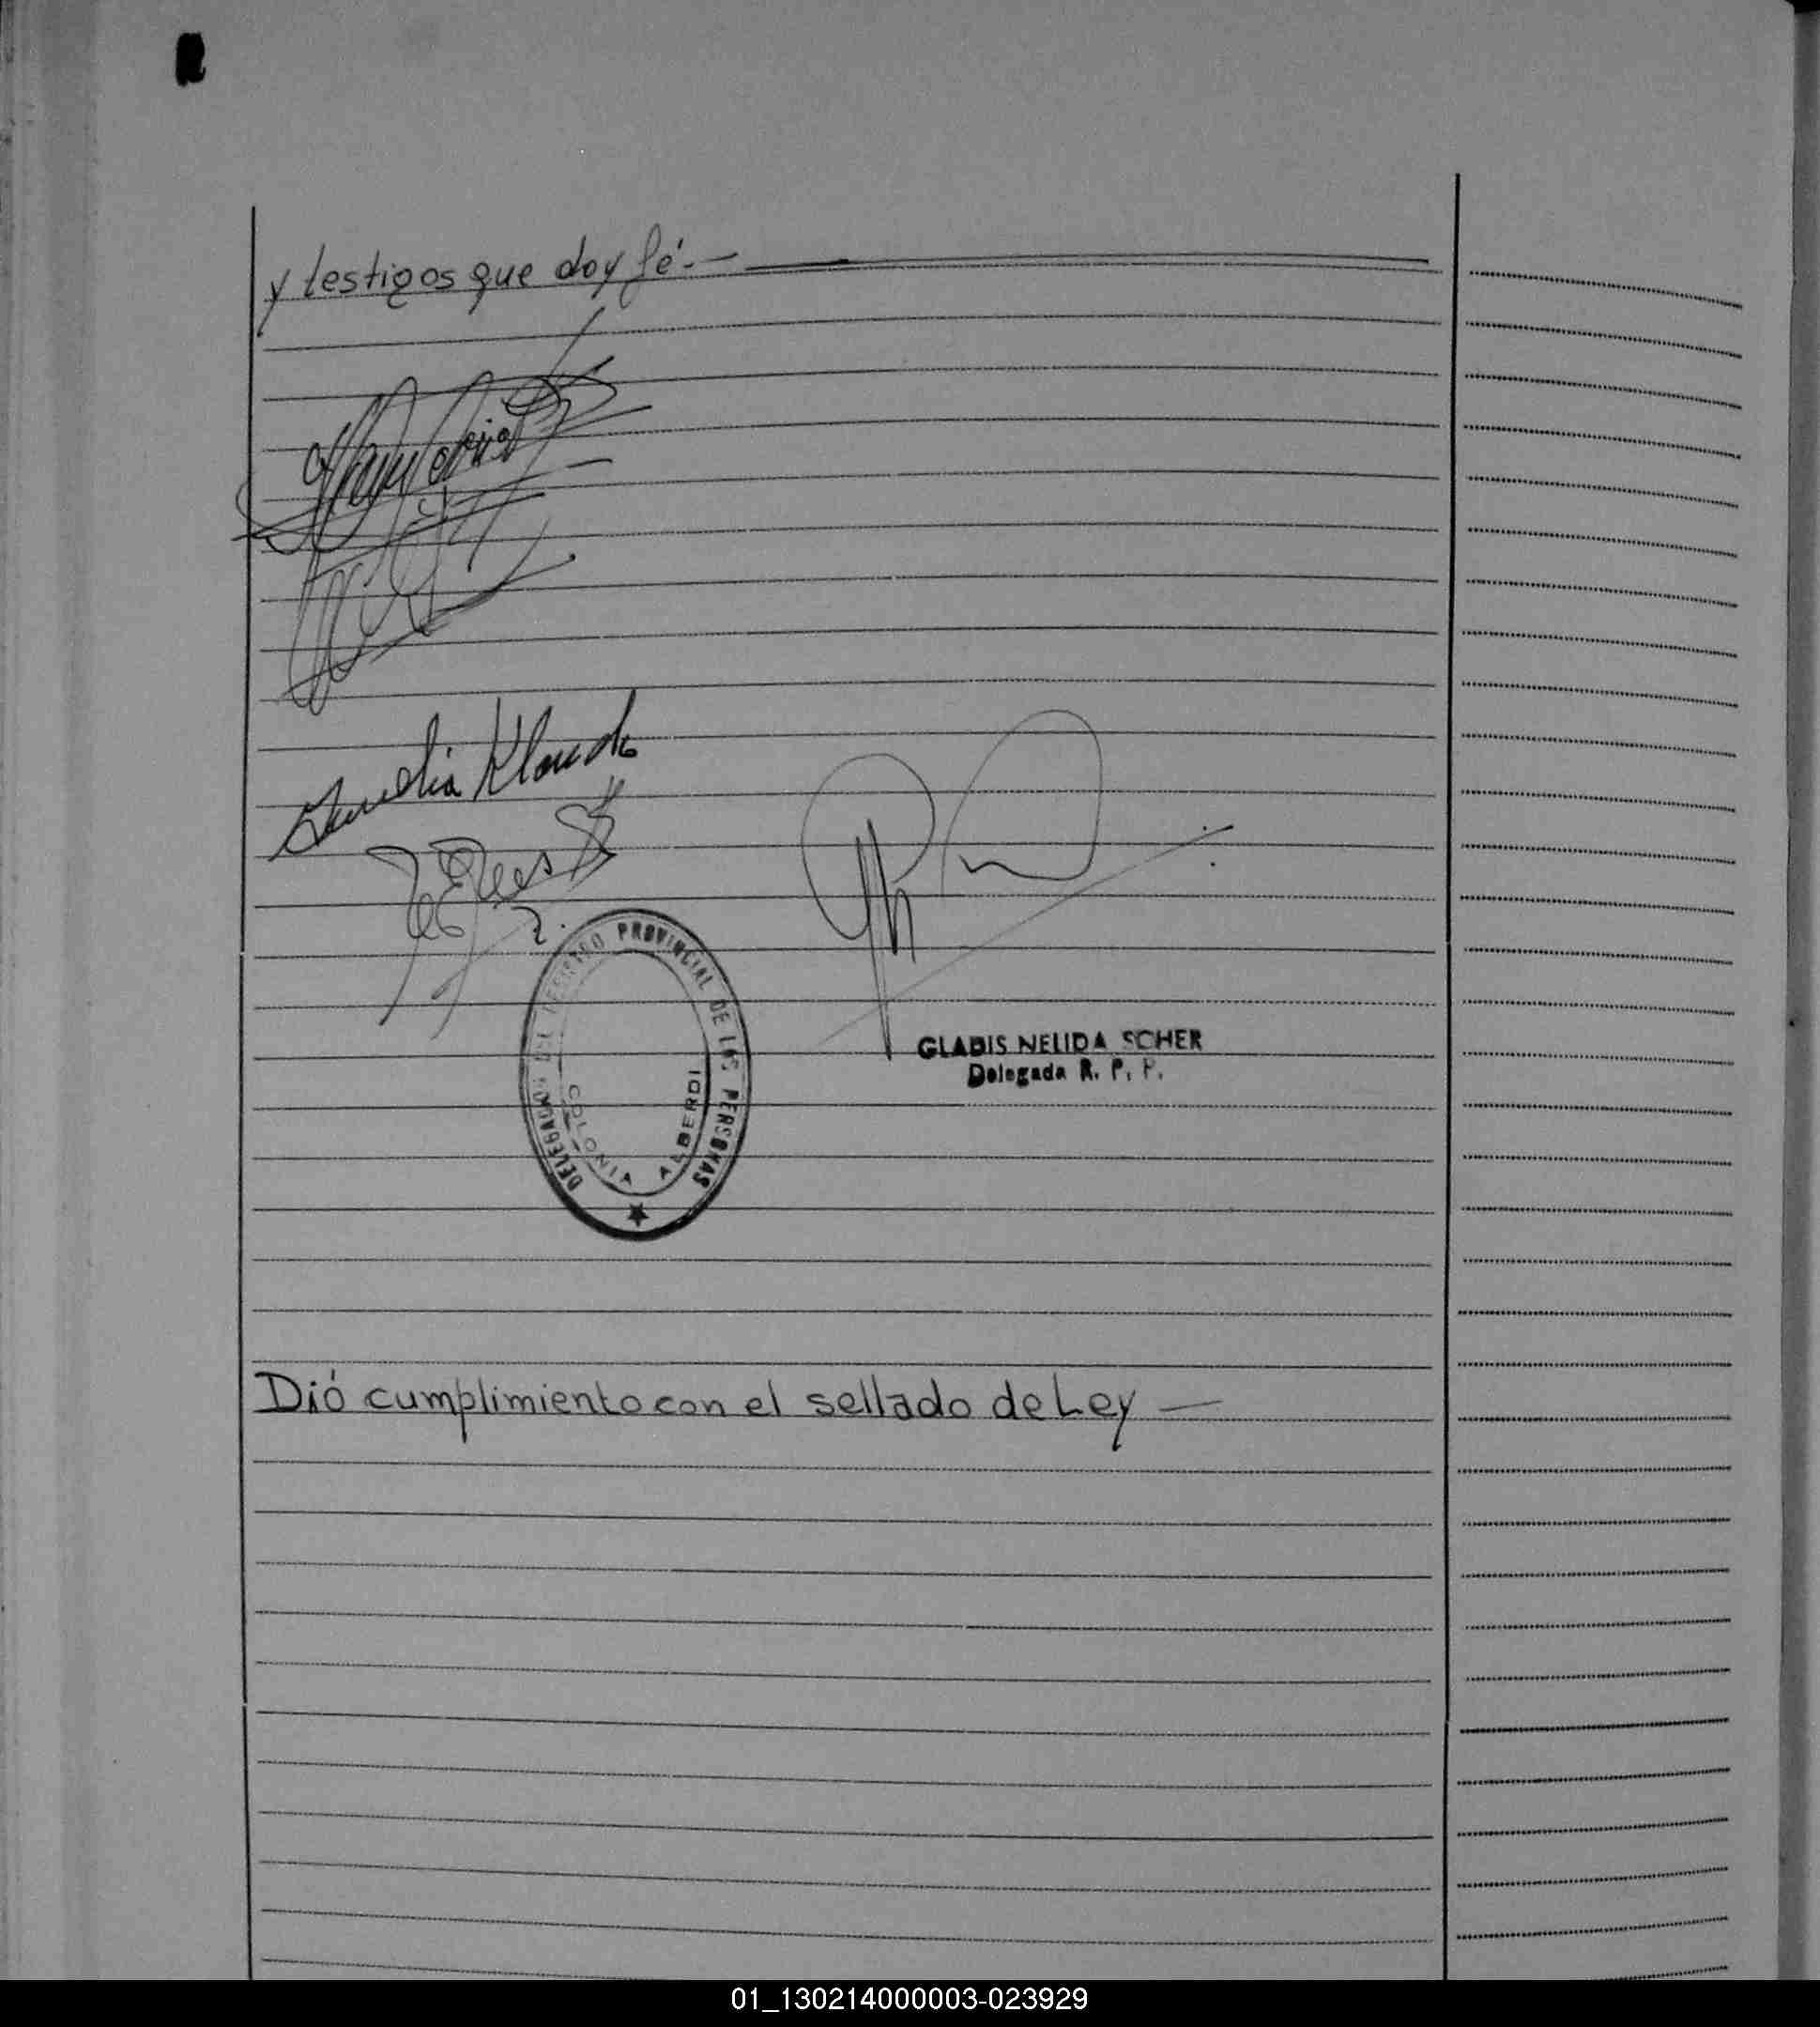 y testigos que doy fé.-
Amelia
DELEGADO DEL REGISTRO PROVINCIAL DE LAS PERSONAS
COLONIA ALBERDI
GLADIS NELIDA SCHER
Delegada R. P. P.
Dió cumplimiento con el sellado de Ley —
01_130214000003-023929